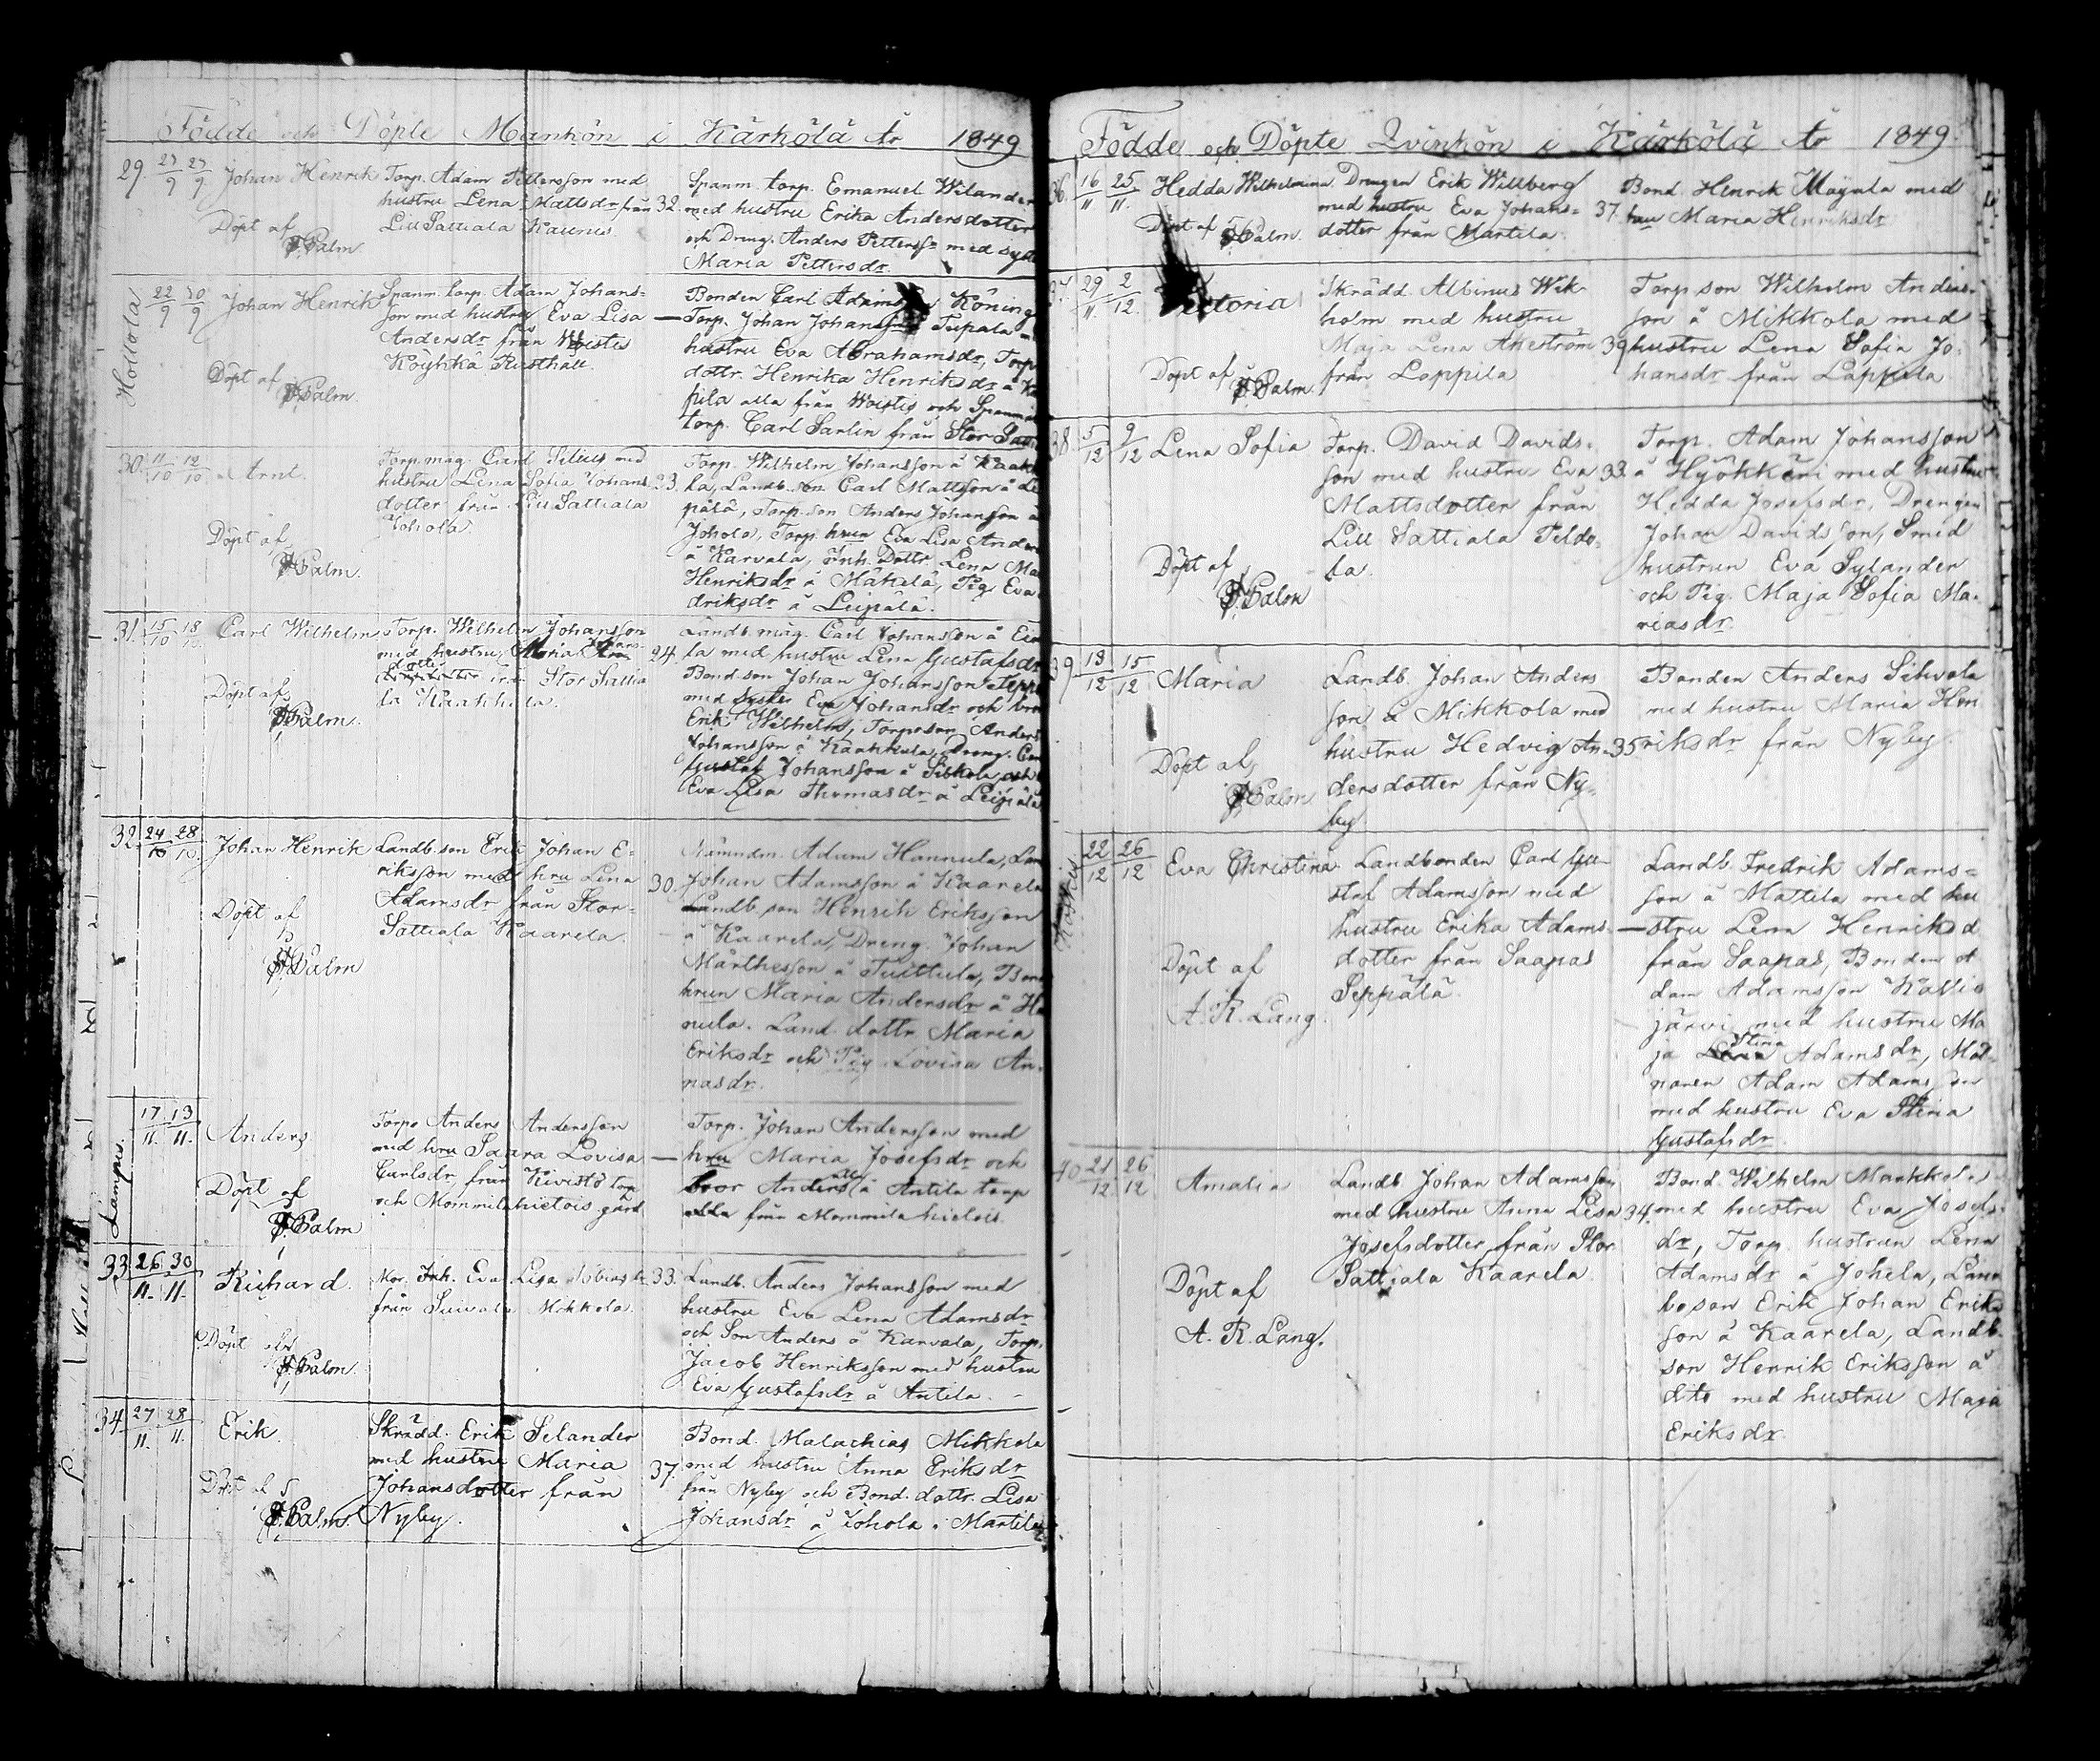 Födde och Döpte Mankön i Kärkölä År 1849
29. 27/9 27/9 Johan Henrik
Döpt af
Palm
Torp. Adam Pettersson med
hustru Lena Mattsdr från
Lill Sattiala Kaunis
32.
Spanm. torp. Emanuel Wilander
med hustru Erika Andersdotter
och Dreng. Anders Petterss. med
Maria Pettersdr.
Hollola
22/9 30/9 Johan Henrik
Döpt af
Palm.
Spanm. torp. Adam Johans-
son med hustru Eva Lisa
Andersdr från Woistis
Köykkä Rusthåll.
—
Bonden Carl Köning
Torp. Johan Johansson
hustru Eva Abrahamsdr, Torp.
dottr. Henrika Henriksdr å
pila alla från Woistis och
torp. Carl Sarlin från Stor
30. 11/10 12/10 Arnt.
Döpt af
Palm.
Torp. mag. Carl Silius med
hustru Lena Sofia Johans
dotter från Lill Sattiala
Johola.
23.
Torp. Wilhelm Johansson å
la, Landb. son Carl Mattsson å
pälä, Torp. son Anders Johansson å
Johola, Torp. hrun Eva Lisa
å Karvala, Inh. Dottr Lena
Henriksdr å Mäkelä, Pig. Eva
driksdr å Leipälä.
31. 15/10 18/10 Carl Wilhelm
Döpt af
Palm.
Torp. Wilhelm Johansson
med hustru Maria Johans-
dotter från Stor Sattia
la Kaakkola.
24.
Landb. måg. Carl Johansson å
la med hustru Lena Gustafsdr
Bond. son Johan Johansson
med syster Eva Johansdr och
Erik Wilhelm, Torpason Anders
Johansson å Kaakkola, Dreng.
Gustaf Johansson å
Eva Lisa Thomasdr å Leipälä
32. 24/10 28/10 Johan Henrik
Döpt af
Palm
Landb. son Erik Johan E-
riksson med hru Lena
Adamsdr från Stor-
Sattiala Kaarela.
30.
Nämndm. Adam Hannula,
Johan Adamsson å Kaarela
Landb. son Henrik Eriksson
å Kaarela, Dreng. Johan
Mårthesson å Tuittula,
hrun Maria Andersdr å
nula. Land. dottr Maria
Eriksdr och Pig Lovisa An-
nasdr.
Lampis.
17/11. 13/11. Anders
Döpt af
Palm
Torp. Anders Andersson
med hru Saara Lovisa
Carlsdr från Kivistö torp
och Mommila hietois gård
—
Torp. Johan Andersson med
hru Maria Josefsdr och
bror Anders å Antila torp
alla från Mommila hietois.
33. 26/11. 30/11. Richard.
Döpt af
Palm.
Hor. Inh. Eva Lisa
från Suivala Mikkola.
33.
Landb. Anders Johansson med
hustru Eva Lena Adamsdr
och Son Anders å Karvala, Torp.
Jacob Henriksson med hustru
Eva Gustafsdr å Antila.
34. 27/11. 28/11. Erik.
Döpt af
Palm
Skrädd. Erik Selander
med hustru Maria
Johansdotter från
Nyby.
37.
Bond. Malachias Mikkola
med hustru Anna Eriksdr
från Nyby och Bond. dottr. Lisa
Johansdr å Johola i Martila
Födde och Döpte Qvinkön i Kärkölä År 1849.
36. 16/11 25/11. Hedda Wilhelmina
Döpt af Palm.
Drengen Erik Willberg
med hustru Eva Johans-
dotter från Martila.
37.
Bond. Henrik Mäyala med
hru Maria Henriksdr
37. 29/11. 2/12.
Döpt af
Palm
Skrädd. Albinus Wik-
holm med hustru
Maja Lena Åkeström
från Lappila
39
Torp. son Wilhelm Anders-
son å Mikkola med
hustru Lena Sofia Jo-
hansdr från Lappila
38. 5/12 9/12 Lena Sofia
Döpt af
Palm
Torp. David Davids-
son med hustru Eva
Mattsdotter från
Lill Sattiala Peldo-
la.
33.
Torp. Adam Johansson
å Hyökkäri med hustru
Hedda Josefsdr, Drengen
Johan Davidsson, Smed
hustrun Eva Sylander
och Pig. Maja Sofia Ma-
riasdr.
39. 13/12 15/12 Maria
Döpt af
Palm
Landb. Johan Anders
son å Mikkola med
hustru Hedvig An-
dersdotter från Ny-
by
35
Bonden Anders Sihvola
med hustru Maria Hen
riksdr från Nyby.
Koskis.
22/12 26/12 Eva Christina
Döpt af
A. R. Lang.
Landbonden Carl Gu-
staf Adamsson med
hustru Erika Adams-
dotter från Saapas
Seppälä.
—
Landb. Fredrik Adams-
son å Mattila med hu
stru Lena Henriksd
från Saapas, Bonden A
dam Adamsson Kallio
järvi med hustru Ma
ja Stina Adamsdr, Möl-
naren Adam Adamsson
med hustru Eva Stina
Gustafsdr.
40 21/12. 26/12 Amalia
Döpt af
A. R. Lang.
Landb. Johan Adamsson
med hustru Anna Lisa
Josefsdotter från Stor
Sattiala Kaarela
34.
Bond. Wilhelm Markkola
med hustru Eva Josefs-
dr, Torp. hustrun Lena
Adamsdr å Johela, Land
boson Erik Johan Eriks
son å Kaarela, Landb.
son Henrik Eriksson å
dito med hustru Maja
Eriksdr.